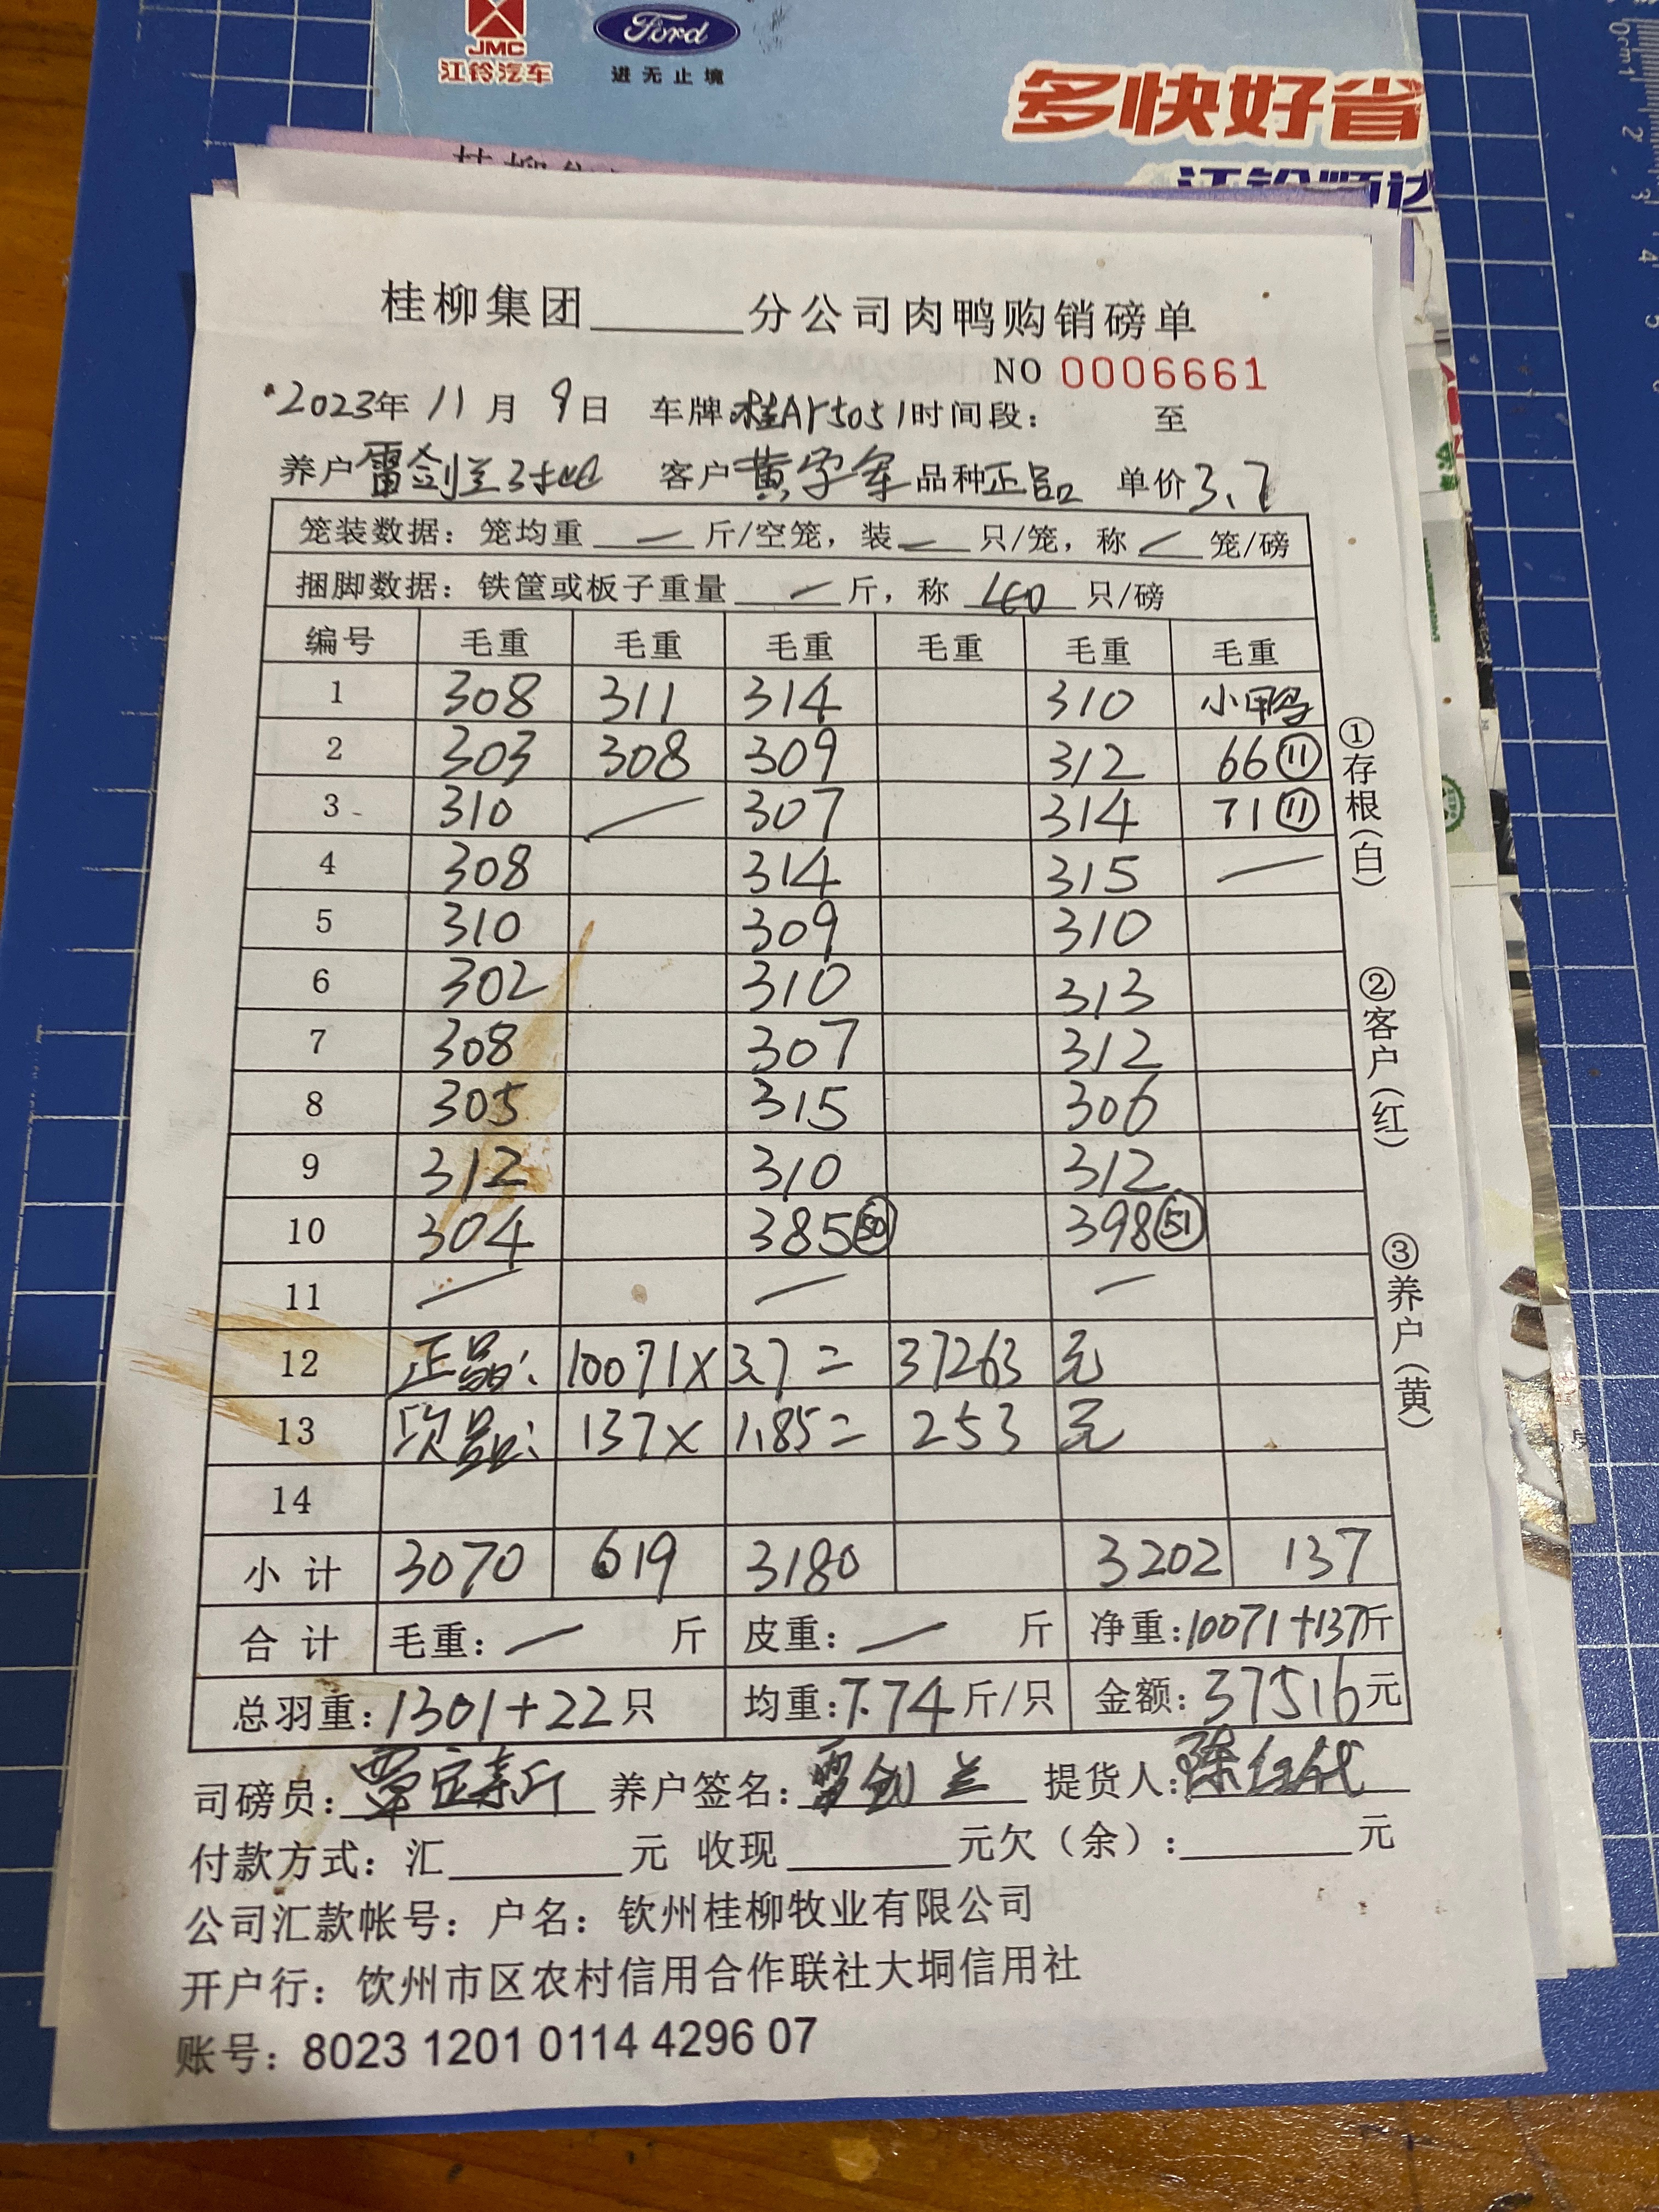 JMC
江铃汽车
Ford
进无止境
多快好省
江铃顺达
桂柳集团______分公司肉鸭购销磅单
NO 0006661
2023年 11月 9日 车牌:桂AY5051 时间段: 至
养户 雷剑兰 客户 黄字军 品种 正品 单价 3.7
笼装数据: 笼均重 — 斤/空笼, 装 — 只/笼, 称 — 笼/磅
捆脚数据: 铁筐或板子重量 — 斤, 称 40 只/磅
编号 毛重 毛重 毛重 毛重 毛重 毛重
1 308 311 314 310 小鸭
2 303 308 309 312 66⑪
3 310 — 307 314 71⑪
4 308 314 315 —
5 310 309 310
6 302 310 313
7 308 307 312
8 305 315 306
9 312 310 312
10 304 385㊿ 398(51)
11 — — —
12 正品: 10071× 3.7= 37263 元
13 次品: 137× 1.85= 253 元
14
小计 3070 619 3180 3202 137
合计 毛重: — 斤 皮重: — 斤 净重: 10071+137斤
总羽重: 1301+22只 均重: 7.74斤/只 金额: 37516元
司磅员: 养户签名: 雷剑兰 提货人:
付款方式: 汇______元 收现______元欠(余): ______元
公司汇款帐号: 户名: 钦州桂柳牧业有限公司
开户行: 饮州市区农村信用合作联社大垌信用社
账号: 8023 1201 0114 4296 07
①存根(白)
②客户(红)
③养户(黄)